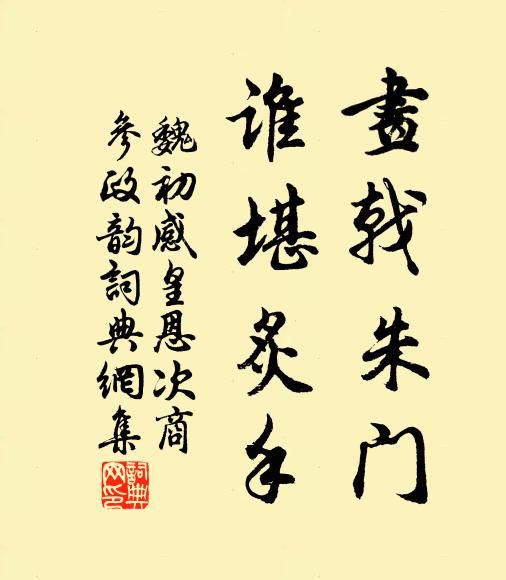 畫戟朱门
谁堪炙手
魏初感皇恩次商
參政韵詞典網集
詞典网印